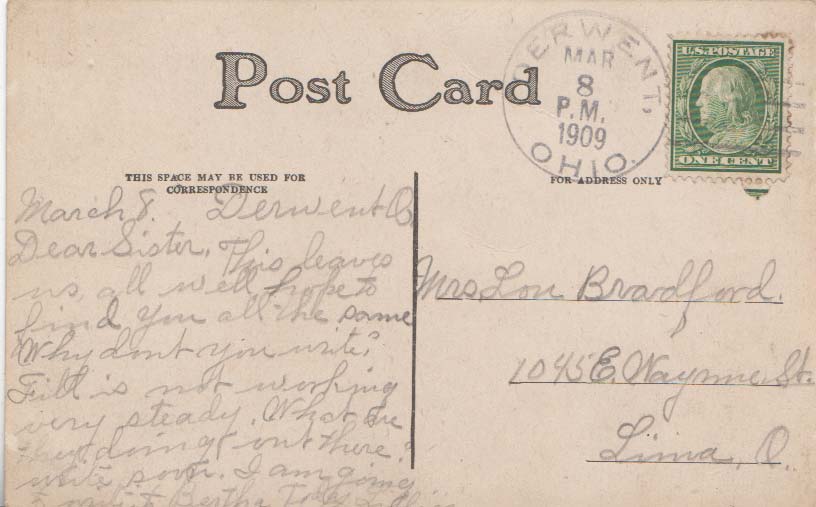 Post Card
DERWENT,
MAR
8
P.M.
1909
OHIO.
U.S. POSTAGE
ONE CENT
THIS SPACE MAY BE USED FOR
CORRESPONDENCE
FOR ADDRESS ONLY
March 8. Derwent O
Dear Sister. This leaves
us, all well hope to
find you all the same
Why dont you write?
is not working
very steady. What are
they doing out there?
write soon. I am going
to Bertha
Mrs. Lou Bradford.
1045 E. Waynne St.
Lima, O.